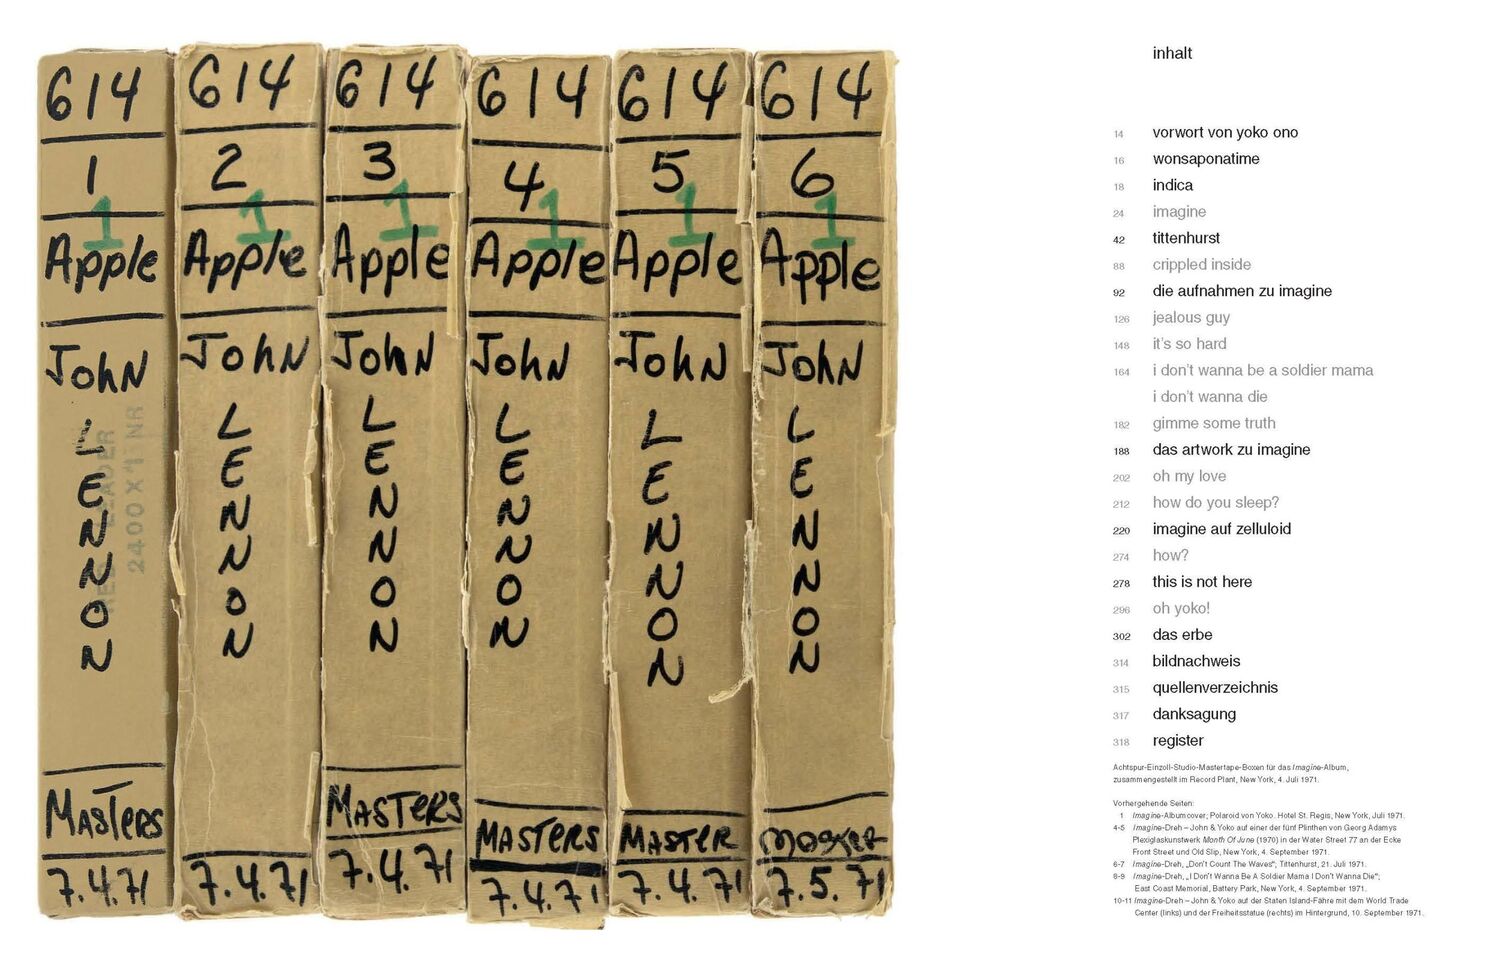 614
1
1
Apple
John
LENNON
2400 X 1 NR
Masters
7.4.71
614
2
1
Apple
John
LENNON
7.4.71
614
3
1
Apple
John
LENNON
Masters
7.4.71
614
4
1
Apple
John
LENNON
MASTERS
7.4.71
614
5
1
Apple
John
LENNON
MASTER
7.4.71
614
6
1
Apple
John
LENNON
7.5.71
inhalt
14 vorwort von yoko ono
16 wonsaponatime
18 indica
24 imagine
42 tittenhurst
88 crippled inside
92 die aufnahmen zu imagine
126 jealous guy
148 it's so hard
164 i don't wanna be a soldier mama
i don't wanna die
182 gimme some truth
188 das artwork zu imagine
202 oh my love
212 how do you sleep?
220 imagine auf zelluloid
274 how?
278 this is not here
296 oh yoko!
302 das erbe
314 bildnachweis
315 quellenverzeichnis
317 danksagung
318 register
Achtspur-Einzoll-Studio-Mastertape-Boxen für das Imagine-Album,
zusammengestellt im Record Plant, New York, 4. Juli 1971.
Vorhergehende Seiten:
1 Imagine-Albumcover; Polaroid von Yoko. Hotel St. Regis, New York, Juli 1971.
4-5 Imagine-Dreh – John & Yoko auf einer der fünf Plinthen von Georg Adamys
Plexiglaskunstwerk Month Of June (1970) in der Water Street 77 an der Ecke
Front Street und Old Slip, New York, 4. September 1971.
6-7 Imagine-Dreh, „Don't Count The Waves“; Tittenhurst, 21. Juli 1971.
8-9 Imagine-Dreh, „I Don't Wanna Be A Soldier Mama I Don't Wanna Die“;
East Coast Memorial, Battery Park, New York, 4. September 1971.
10-11 Imagine-Dreh – John & Yoko auf der Staten Island-Fähre mit dem World Trade
Center (links) und der Freiheitsstatue (rechts) im Hintergrund, 10. September 1971.